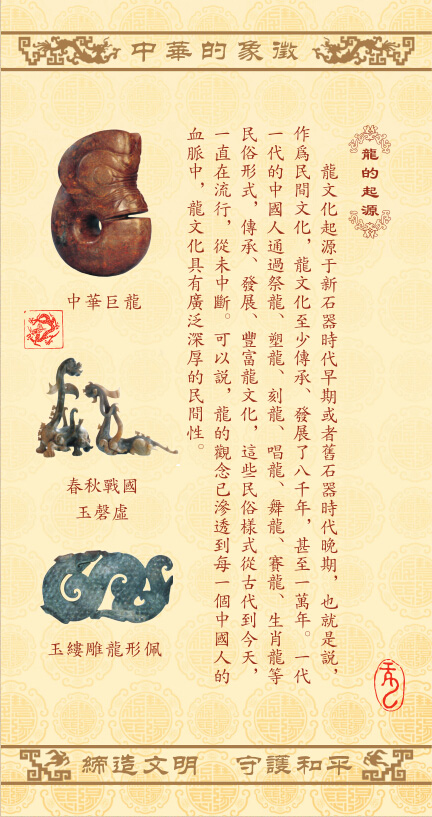 中華的象徵
龍的起源
龍文化起源于新石器時代早期或者舊石器時代晚期，也就是説，
作爲民間文化，龍文化至少傳承、發展了八千年，甚至一萬年。一代
一代的中國人通過祭龍、塑龍、刻龍、唱龍、舞龍、賽龍、生肖龍等
民俗形式，傳承、發展、豐富龍文化，這些民俗樣式從古代到今天，
一直在流行，從未中斷。可以説，龍的觀念已滲透到每一個中國人的
血脈中，龍文化具有廣泛深厚的民間性。
中華巨龍
春秋戰國
玉磬虛
玉縷雕龍形佩
締造文明 守護和平